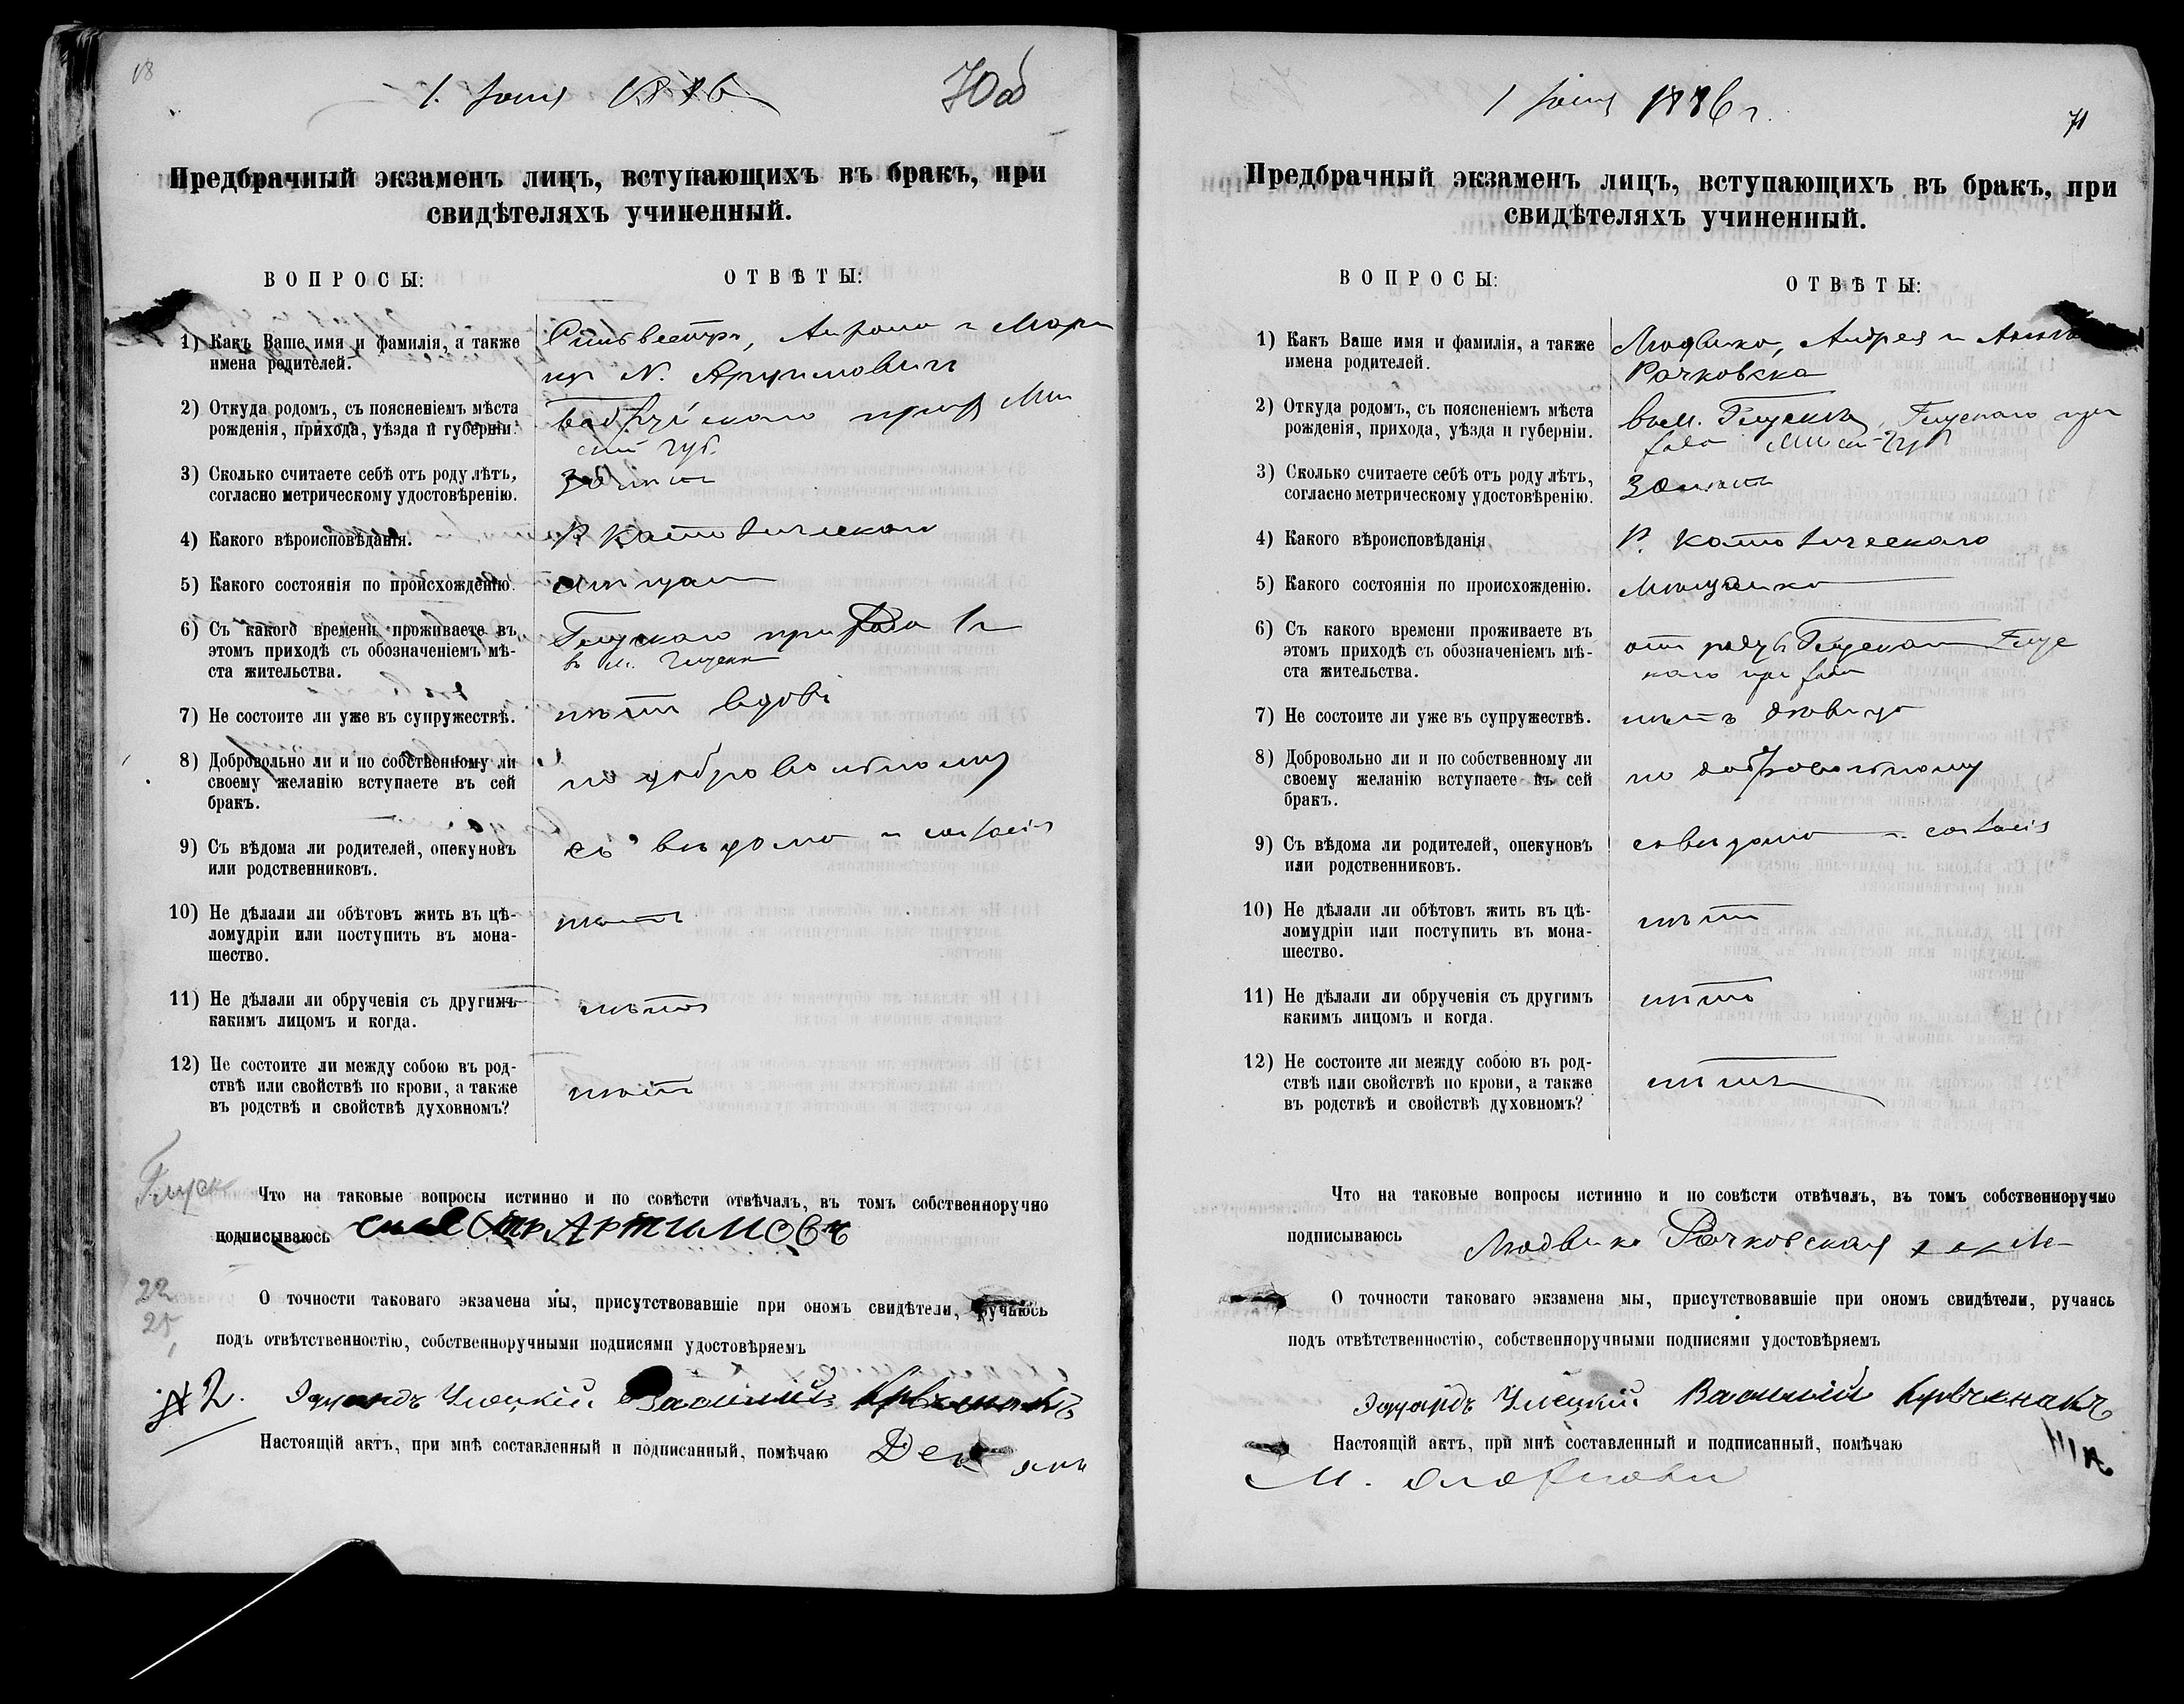 18
70об
Предбрачный экзаменъ лицъ, вступающихъ въ бракъ, при
свидѣтеляхъ учиненный.
ВОПРОСЫ:
ОТВѢТЫ:
1) Какъ Ваше имя и фамилія, а также
имена родителей.
Сильвестръ,
2) Откуда родомъ, съ поясненіемъ мѣста
рожденія, прихода, уѣзда и губерніи.
3) Сколько считаете себѣ отъ роду лѣтъ,
согласно метрическому удостовѣренію.
4) Какого вѣроисповѣданія.
Р. Католическаго
5) Какого состоянія по происхожденію.
6) Съ какого времени проживаете въ
этомъ приходѣ съ обозначеніемъ мѣ-
ста жительства.
Глускаго прихода
7) Не состоите ли уже въ супружествѣ.
8) Добровольно ли и по собственному ли
своему желанію вступаете въ сей
бракъ.
по добровольному
9) Съ вѣдома ли родителей, опекуновъ
или родственниковъ.
съ вѣдома и согласія
10) Не дѣлали ли обѣтовъ жить въ цѣ-
ломудріи или поступить въ мона-
шество.
нѣтъ
11) Не дѣлали ли обрученія съ другимъ
какимъ лицомъ и когда.
нѣтъ
12) Не состоите ли между собою въ род-
ствѣ или свойствѣ по крови, а также
въ родствѣ и свойствѣ духовномъ?
нѣтъ
Глуск
Что на таковые вопросы истинно и по совѣсти отвѣчалъ, въ томъ собственноручно
подписываюсь
22
25
О точности таковаго экзамена мы, присутствовавшіе при ономъ свидѣтели, ручаюсь
подъ отвѣтственностію, собственноручными подписями удостовѣряемъ
Эдуардъ Василій
Настоящій актъ, при мнѣ составленный и подписанный, помѣчаю
1886 г.
71
Предбрачный экзаменъ лицъ, вступающихъ въ бракъ, при
свидѣтеляхъ учиненный.
ВОПРОСЫ:
ОТВѢТЫ:
1) Какъ Ваше имя и фамилія, а также
имена родителей.
Людвика, Андрея и
Рачковска
2) Откуда родомъ, съ поясненіемъ мѣста
рожденія, прихода, уѣзда и губерніи.
3) Сколько считаете себѣ отъ роду лѣтъ,
согласно метрическому удостовѣренію.
4) Какого вѣроисповѣданія
Р. Католическаго
5) Какого состоянія по происхожденію.
Мѣщанка
6) Съ какого времени проживаете въ
этомъ приходѣ съ обозначеніемъ мѣ-
ста жительства.
7) Не состоите ли уже въ супружествѣ.
нѣтъ девица
8) Добровольно ли и по собственному ли
своему желанію вступаете въ сей
бракъ.
по добровольному
9) Съ вѣдома ли родителей, опекуновъ
или родственниковъ.
съ вѣдома и согласія
10) Не дѣлали ли обѣтовъ жить въ цѣ-
ломудріи или поступить въ мона-
шество.
нѣтъ
11) Не дѣлали ли обрученія съ другимъ
какимъ лицомъ и когда.
нѣтъ
12) Не состоите ли между собою въ род-
ствѣ или свойствѣ по крови, а также
въ родствѣ и свойствѣ духовномъ?
нѣтъ
Что на таковые вопросы истинно и по совѣсти отвѣчалъ, въ томъ собственноручно
подписываюсь Людвика Рачковская
О точности таковаго экзамена мы, присутствовавшіе при ономъ свидѣтели, ручаясь
подъ отвѣтственностію, собственноручными подписями удостовѣряемъ
Эдуардъ Василій
Настоящій актъ, при мнѣ составленный и подписанный, помѣчаю